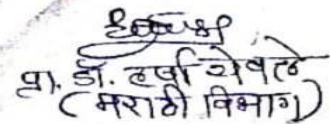 प्रा. डॉ. वर्षा शेवले
(मराठी विभाग)